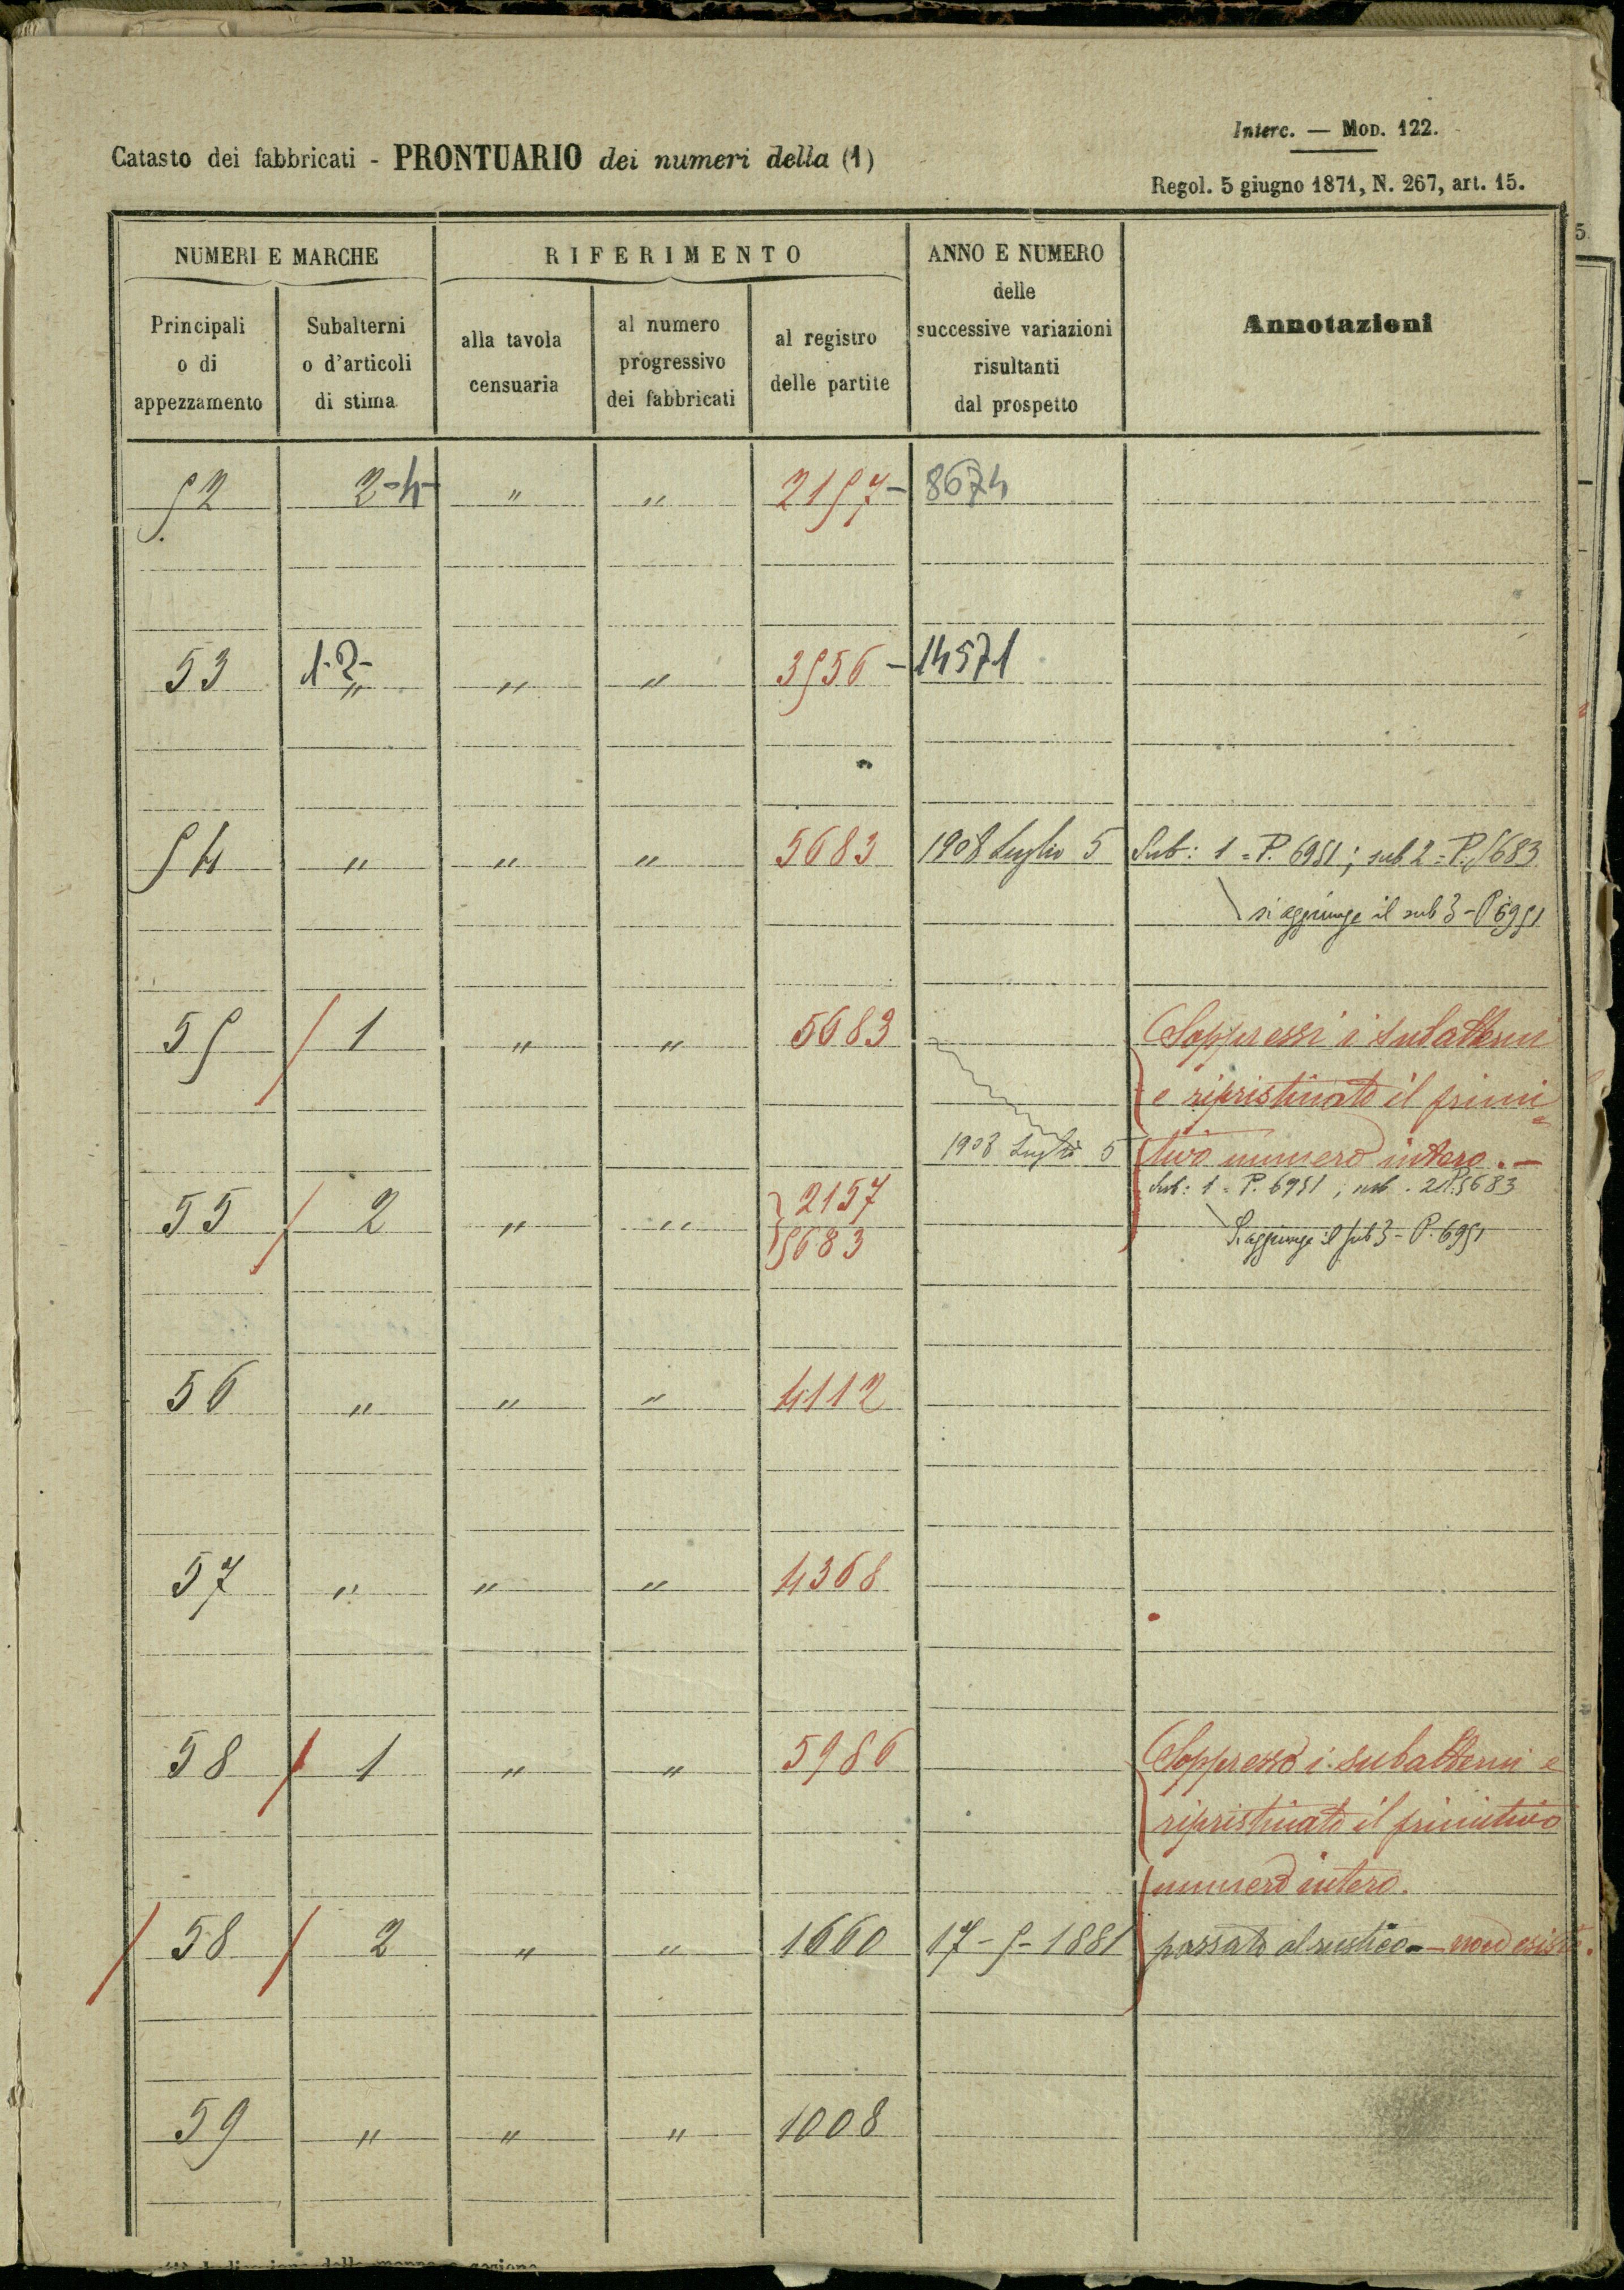 Interc. — Mod. 122.
Catasto dei fabbricati - PRONTUARIO dei numeri della (1)
Regol. 5 giugno 1871, N. 267, art. 15.
NUMERI E MARCHE
RIFERIMENTO
ANNO E NUMERO
delle
successive variazioni
risultanti
dal prospetto
Annotazioni
Principali
o di
appezzamento
Subalterni
o d'articoli
di stima
alla tavola
censuaria
al numero
progressivo
dei fabbricati
al registro
delle partite
52 2-4- " " 2157- 8674
53 1-2- " " " 3556- 14571
54 " " " 5683 1908 Luglio 5 Sub: 1 = P. 6951; sub 2 = P. 5683
si aggiunge il sub 3 - P 6951
55 1 " " 5683 Soppressi i subalterni
e ripristinato il primi=
1908 Luglio 5 tivo numero intero. —
Sub: 1 = P. 6951; sub. 2 = P. 5683
55 2 " " 2157
5683 Si aggiunge il sub 3 - P. 6951
56 " " " 4112
57 " " " 4368
58 1 " " 5986 Soppressi i subalterni e
ripristinato il primitivo
numero intero.
58 2 " " 1660 17-5-1881 passato al rustico - non esiste.
59 " " " 1008